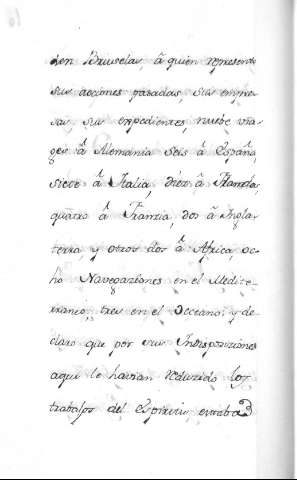 en Bruselas, â quien represento
sus acciones pasadas, sus empre-
sas sus expedientes, nuebe via-
ges â Alemania Seis â España,
siete â Italia, diez â Flandes,
quatro â Francia, dos â Ingla-
terra, y otros dos â Africa, oc-
ho Navegaziones en el Medite-
rraneo, tres en el Occeano: y de-
claro que por sus Indisposiziones
aqui le havian reduzido los
trabajos del Espiritu,